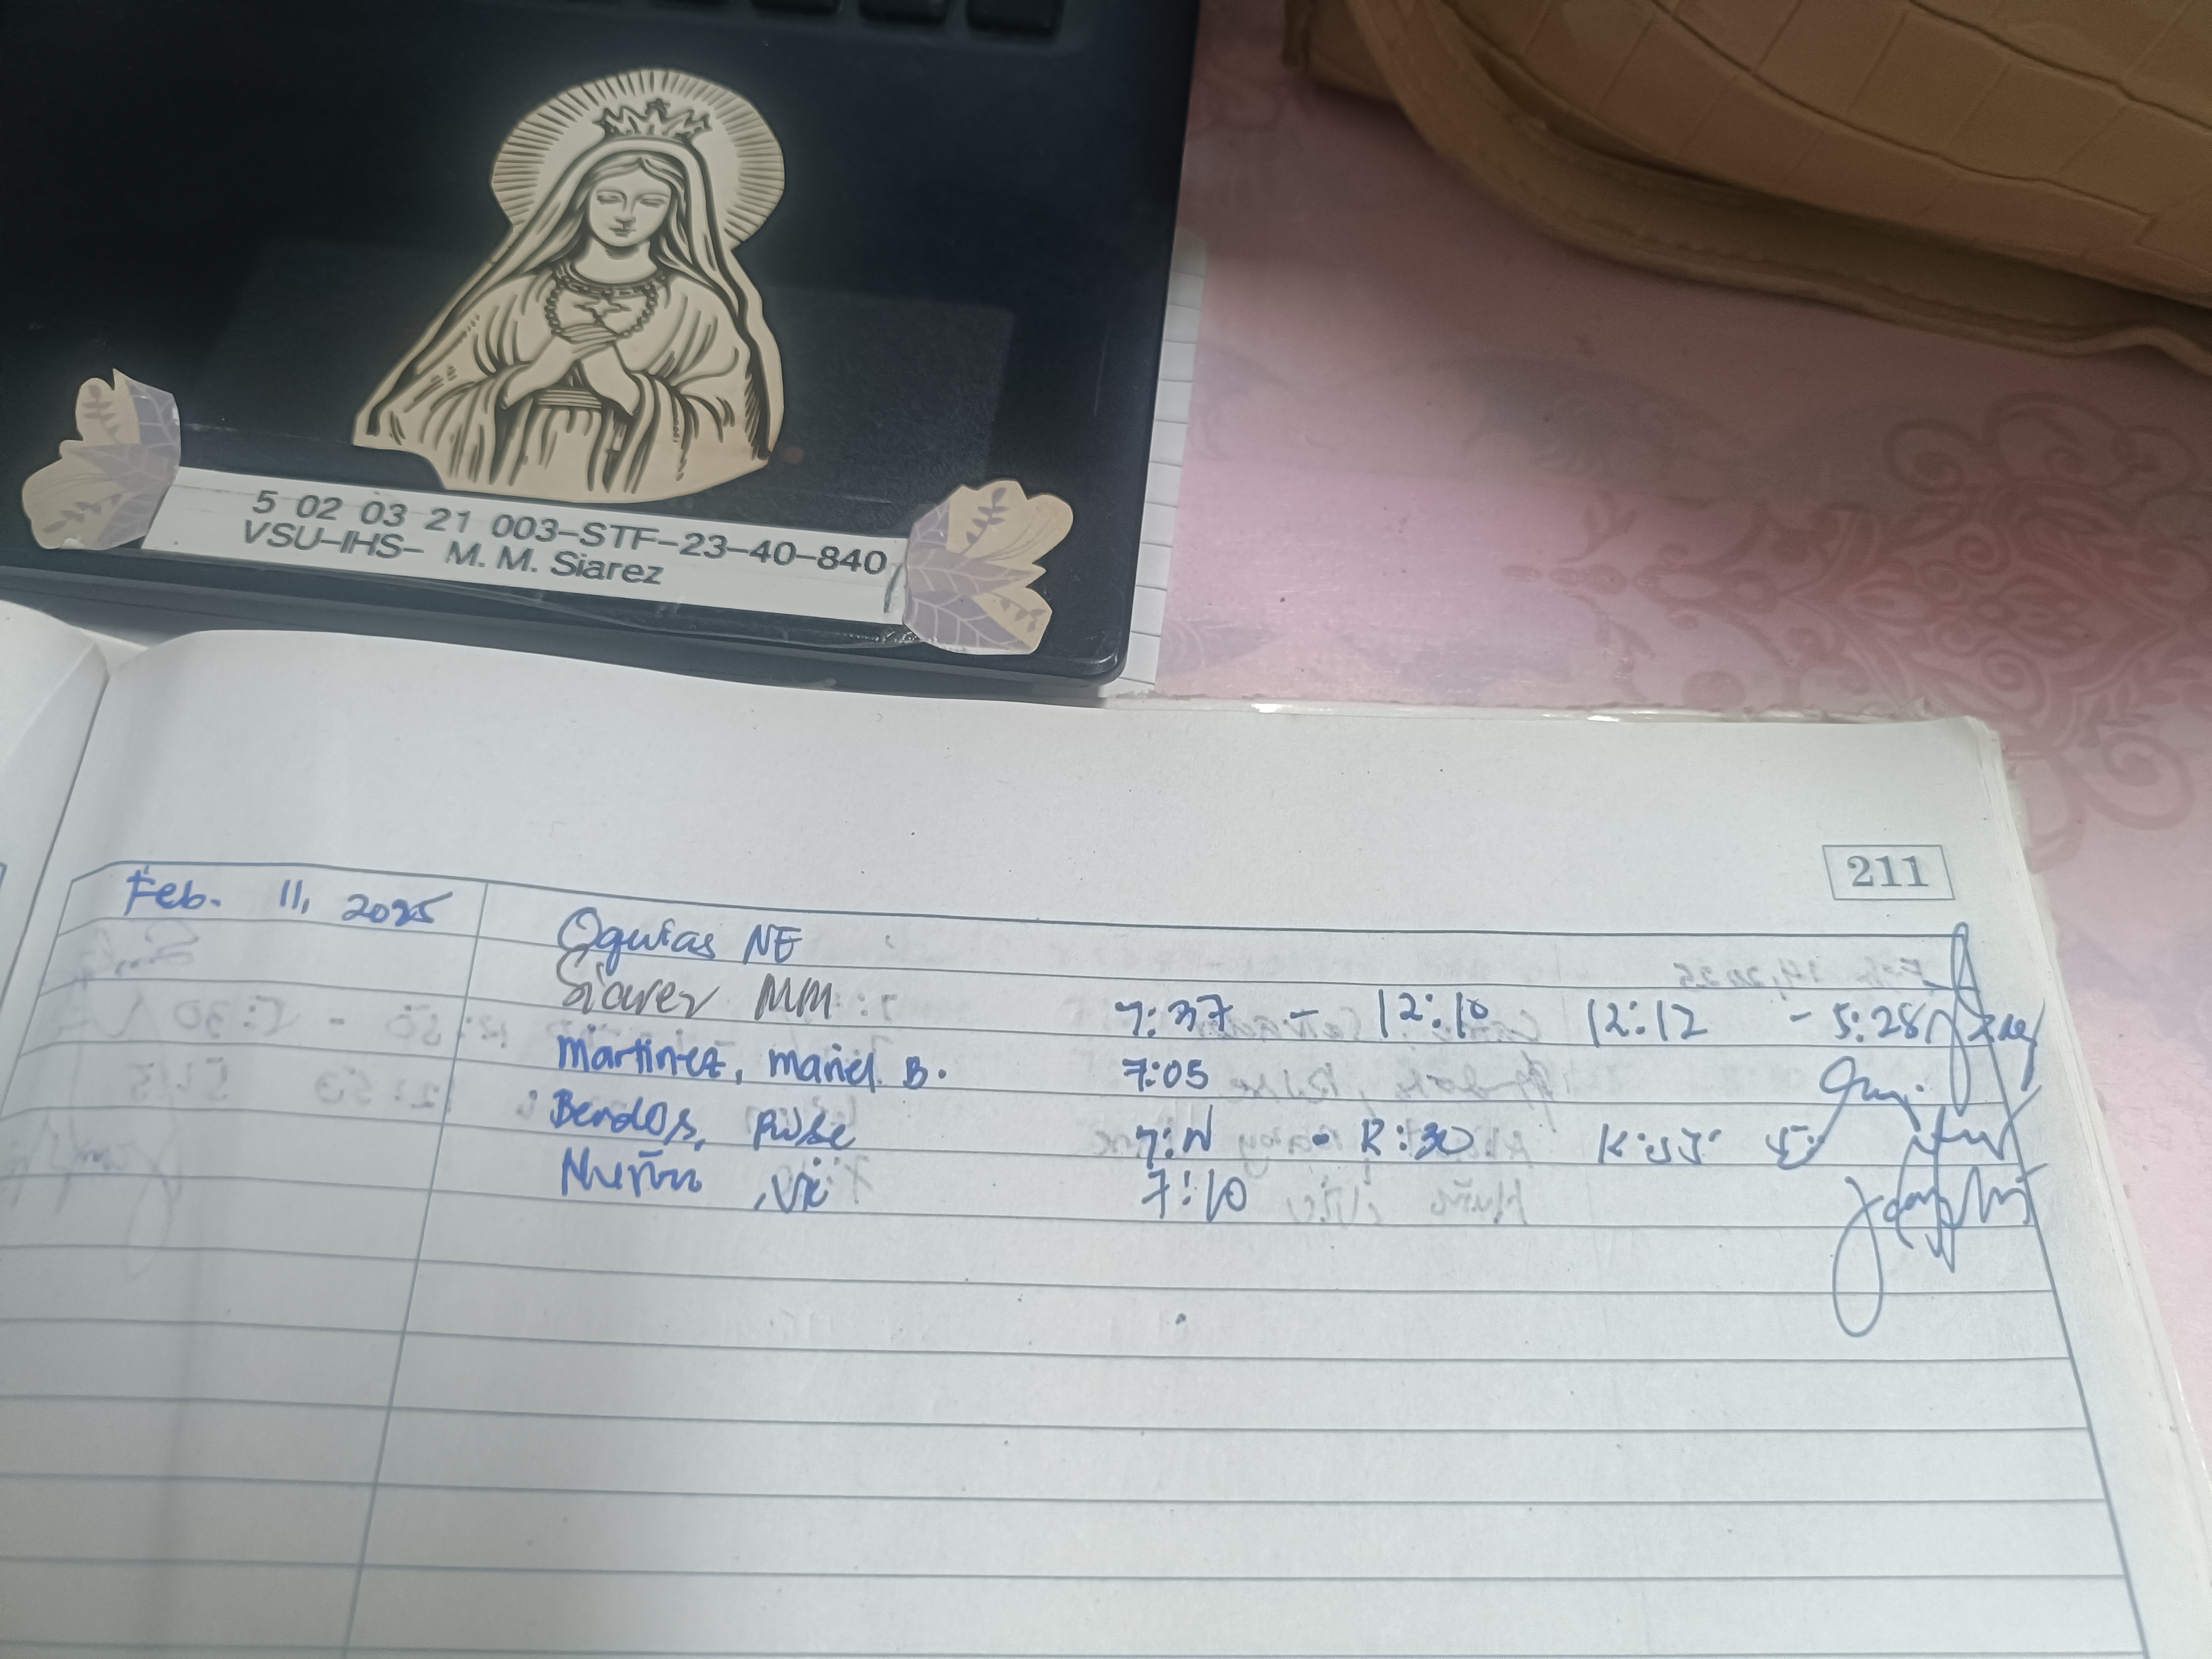 5 02 03 21 003-STF-23-40-840
VSU-IHS- M. M. Siarez
211
Feb. 11, 2025
Oguias NE
Siarez MM 7:37 - 12:10 12:12 - 5:28
Martinez, Mariel B. 7:05
Bendos, Rose - 12:30
Vic 7:10